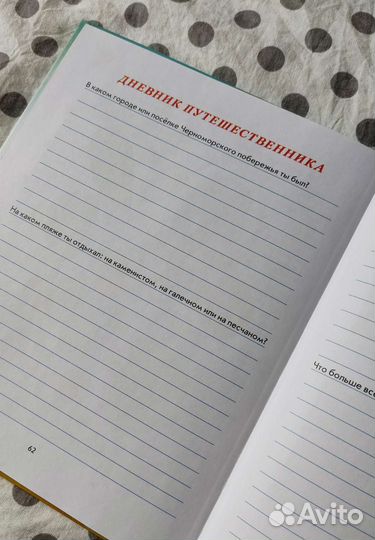 ДНЕВНИК ПУТЕШЕСТВЕННИКА
В каком городе или посёлке Черноморского побережья ты был?
На каком пляже ты отдыхал: на каменистом, на галечном или на песчаном?
62
Что больше все
Avito